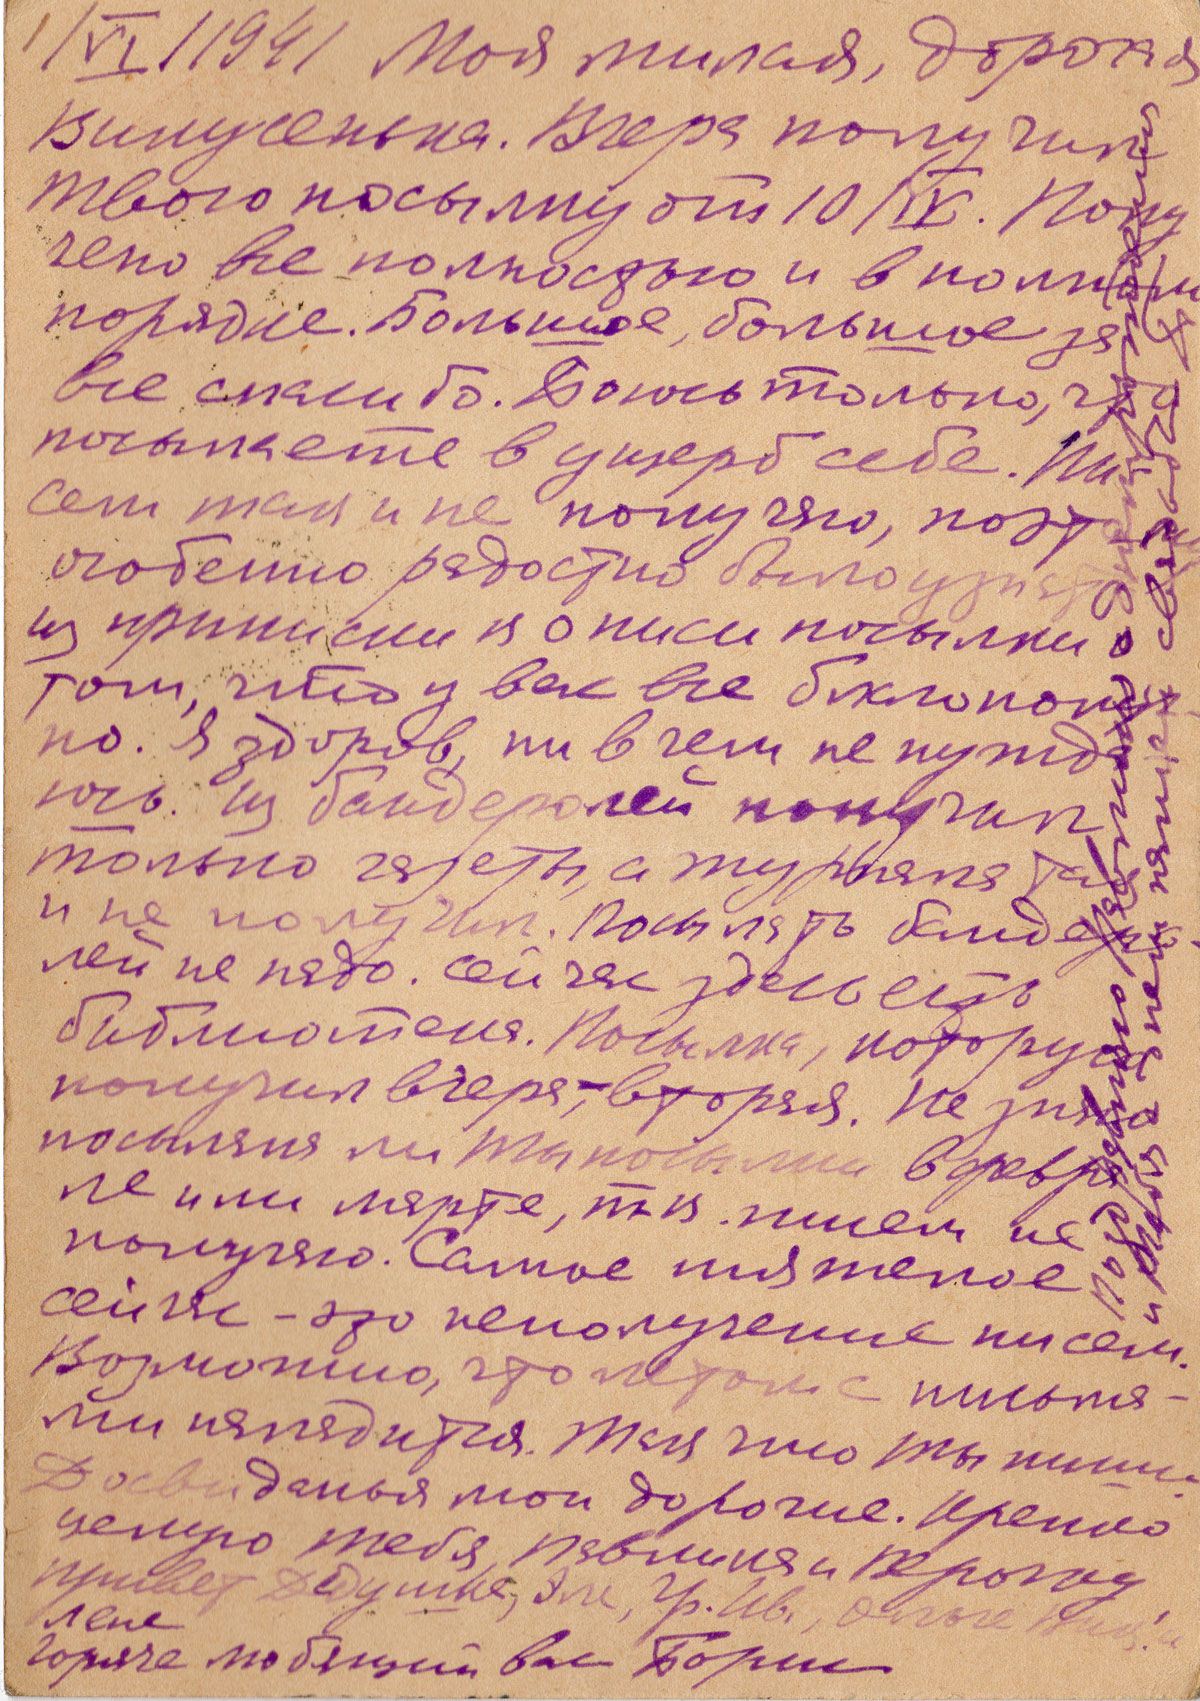 1/VI/1941 Моя милая, дорогая
Винусенька. Вчера получил
твою посылку от 10/IV. Полу
чено все полностью и в полном
порядке. Большое, большое за
все спасибо. Боюсь только, что
посылаете в ущерб себе. Пи
сем так и не получаю, поэт
особенно радостно было узнать
из приписки к описи посылки о
том, что у вас все благополуч
но. Я здоров, ни в чем не нужда
юсь. Из бандеролей получил
только газеты, а журнала так
и не получил. Посылать бандеро
лей не надо. Сейчас здесь есть
библиотека. Посылка, которую
получил вчера, - вторая. Не знаю
посылала ли ты посылки в февра
ле или марте, т.к. писем не
получаю. Самое тяжелое
сейчас - это неполучение писем.
Возможно, что летом с письма-
ми наладится. Так что ты пиши.
Досвиданья мои дорогие. Крепко
целую тебя, Павлика и
привет Дедушке, Эле, Гр. Ив.,
Лене
Горяче любящий вас Борис
Поздравляю
и тебя с